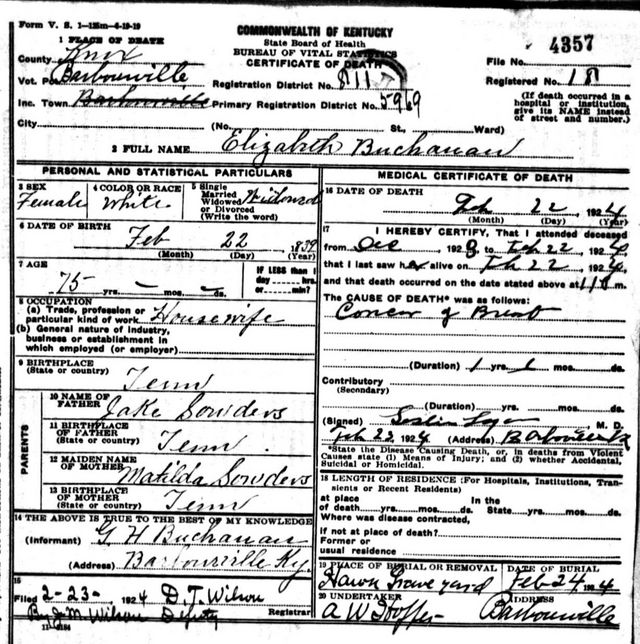 Form V. S. 1—125m—6-19-19
COMMONWEALTH OF KENTUCKY
State Board of Health
BUREAU OF VITAL STATISTICS
CERTIFICATE OF DEATH
1 PLACE OF DEATH
County Knox
Vot. Barbourville
Inc. Town Barbourville
City (No. St., Ward)
Registration District No. 811
Primary Registration District No. 5969
File No. 4357
Registered No. 18
(If death occurred in a
hospital or institution,
give its NAME instead
of street and number.)
2 FULL NAME Elizabeth Buchanan
PERSONAL AND STATISTICAL PARTICULARS
3 SEX
Female
4 COLOR OR RACE
White
5 Single
Married
Widowed
or Divorced
(Write the word)
Widowed
6 DATE OF BIRTH
Feb 22 1839
(Month) (Day) (Year)
7 AGE
75 yrs. — mos. — ds.
IF LESS than 1
day hrs.
or min.?
8 OCCUPATION
(a) Trade, profession or
particular kind of work Housewife
(b) General nature of industry,
business or establishment in
which employed (or employer)
9 BIRTHPLACE
(State or country)
Tenn
PARENTS
10 NAME OF
FATHER
Jake Sowders
11 BIRTHPLACE
OF FATHER
(State or country)
Tenn.
12 MAIDEN NAME
OF MOTHER
Matilda Sowders
13 BIRTHPLACE
OF MOTHER
(State or country)
Tenn
14 THE ABOVE IS TRUE TO THE BEST OF MY KNOWLEDGE
(Informant) G. H Buchanan
(Address) Barbourville Ky.
15
Filed 2-23- 1924 D. T. Wilson
Registrar
By J. M. Wilson Deputy
MEDICAL CERTIFICATE OF DEATH
16 DATE OF DEATH
Feb 22 1924
(Month) (Day) (Year)
17
I HEREBY CERTIFY, That I attended deceased
from Dec 1923 to Feb 22, 1924
that I last saw her alive on Feb 22, 1924
and that death occurred on the date stated above at m.
The CAUSE OF DEATH* was as follows:
Cancer of Breast
(Duration) 1 yrs. mos. ds.
Contributory
(Secondary)
(Duration) yrs. mos. ds.
(Signed) M. D.
Feb 22, 1924 (Address)
*State the Disease Causing Death, or, in deaths from Violent
Causes state (1) Means of Injury; and (2) whether Accidental,
Suicidal or Homicidal.
18 LENGTH OF RESIDENCE (For Hospitals, Institutions, Tran-
sients or Recent Residents)
at place In the
of death yrs. mos. ds. State yrs. mos. ds.
Where was disease contracted,
if not at place of death?
Former or
usual residence
19 PLACE OF BURIAL OR REMOVAL
Grave yard
DATE OF BURIAL
Feb 24 1924
20 UNDERTAKER
A W
ADDRESS
Barbourville